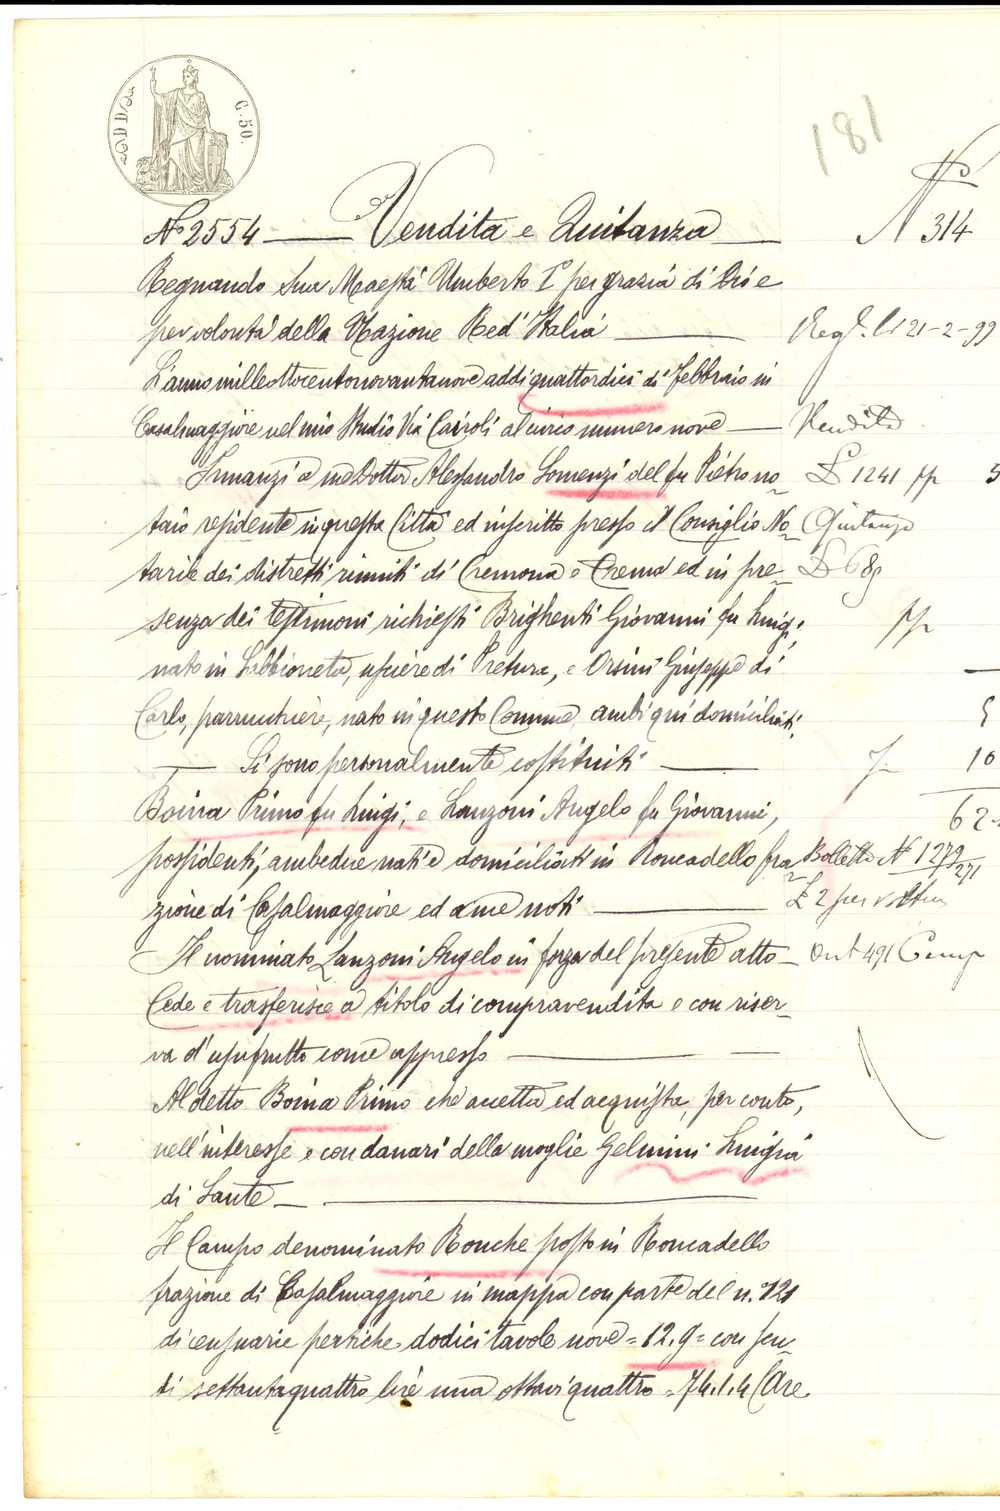 C. 50.
181
N° 2554 Vendita e Quitanza
N° 314
Regnando Sua Maestà Umberto I° per grazia di Dio e
per volontà della Nazione Re d'Italia
Reg. li 21-2-99
L'anno mille ottocentonovantanove addì quattordici di Febbraio in
Casalmaggiore nel mio Studio Via Cairoli al civico numero nove
Vendita
Innanzi a me Dottor Alessandro Somenzi del fu Pietro no-
L 1241 pp 5
taio residente in questa Città ed inscritto presso il Consiglio No-
Quitanza
tarile dei distretti riuniti di Cremona e Crema ed in pre-
L 689
senza dei testimoni richiesti Brighenti Giovanni fu Luigi,
pp
nato in Sabbioneta, usciere di Pretura, e Orsini Giuseppe di
Carlo, parrucchiere, nato in questo Comune, ambi qui domiciliati,
5
Si sono personalmente costituiti
10
Boina Primo fu Luigi, e Lanzoni Angelo fu Giovanni,
62
possidenti, ambedue nati e domiciliati in Roncadello fra-
Bolletta N 1279/271
zione di Casalmaggiore ed a me noti
L 2 per
Il nominato Lanzoni Angelo in forza del presente atto
Art 491 Camp
Cede e trasferisce a titolo di compravendita e con riser-
va d'usufrutto come appresso
Al detto Boina Primo che accetta ed acquista, per conto,
nell'interesse e con danari della moglie Gelmini Luigia
di Sante
Il Campo denominato Ronche posto in Roncadello
frazione di Casalmaggiore in mappa con parte del n. 121
di censuarie pertiche dodici tavole nove = 12.9 = con scu-
di settantaquattro lire una ottavi quattro = 74.1.4 (Are